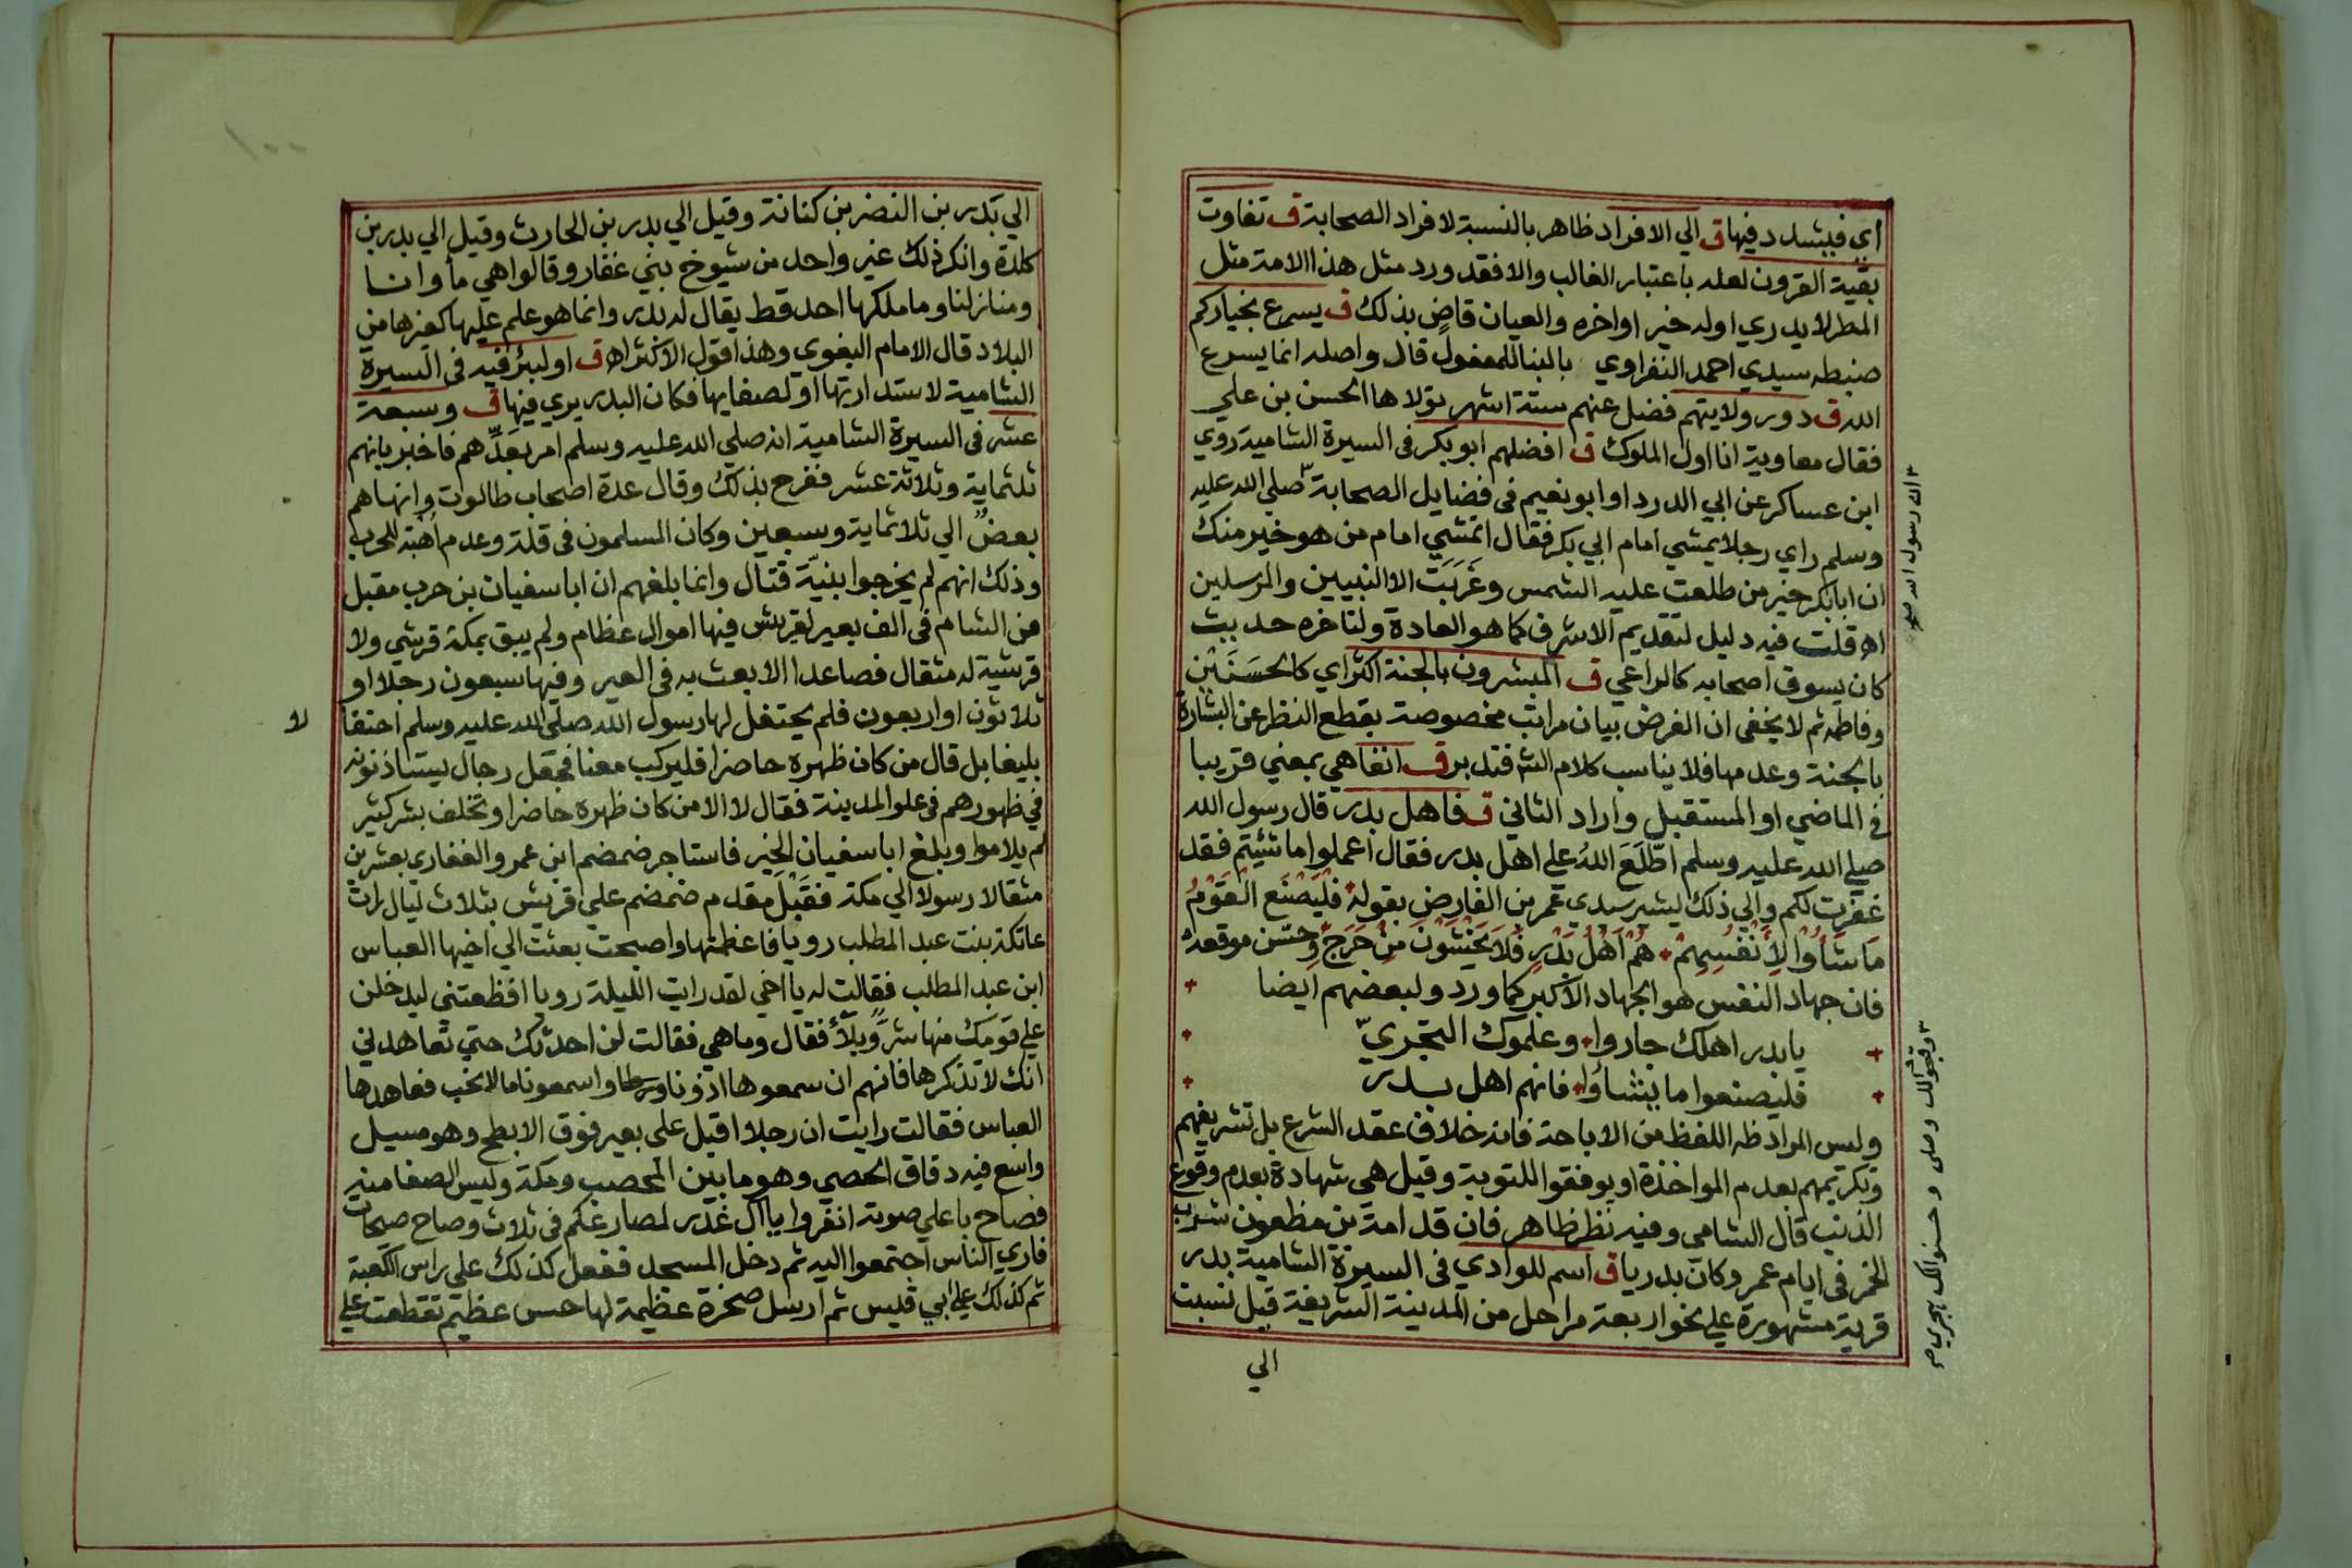 أي فيشدد فيها ق الي الافراد ظاهر بالنسبة لافراد الصحابة ق تفاوت
بقية القرون لعله باعتبار الغالب والا فقد ورد مثل هذا الامة مثل
المطر لا يدري اوله خير او اخره والعيان قاضٍ بذلك ق يسرع بخياركم
ضبطه سيدي احمد النفراوي بالبنا للمفعول قال واصله انما يسرع
الله ق دور ولايتهم فضل عنهم ستة اشهر تولاها الحسن بن علي
فقال معاوية انا اول الملوك ق افضلهم ابو بكر في السيرة الشامية روي
ابن عساكر عن ابي الدردا وابو نعيم في فضايل الصحابة صلي الله عليه
وسلم راي رجلا يمشي امام ابي بكر فقال اتمشي امام من هو خير منك
ان ابا بكر خير من طلعت عليه الشمس وغَرَبَت الا النبيين والمرسلين
اه قلت فيه دليل لتقديم الاشرف كما هو العادة ولتاخره حديث
كان يسوق اصحابه كالراعي ق المبشرون بالجنة اكثر اي كالحَسَنَيْنِ
وفاطمه ثم لا يخفى ان الغرض بيان مراتب مخصوصة بقطع النظر عن البشارة
بالجنة وعدمها فلا يناسب كلام الش فتدبر ق انفا هي بمعني قريبا
في الماضي او المستقبل واراد الثاني ق فاهل بدر قال رسول الله
صلي الله عليه وسلم اطَّلَعَ اللهُ علي اهل بدر فقال اعملوا ما شئيتم فقد
غفرت لكم والي ذلك يشير سيدي عمر بن الفارض بقوله فَلْيَصْنَع الْقَوْمُ
مَا شَأُوْا لِأَنْفُسِهِمْ هُمْ اَهْلُ بَدْرٍ فَلَا يَخْشَوْنَ مِنْ حَرَجٍ وحَسُن موقعه
فان جهاد النفس هو الجهاد الاكبر كما ورد ولبعضهم ايضا
يا بدر اهلك جاروا وعلموك التجريّ
فليصنعوا ما يشأوا فانهم اهل بدر
وليس المراد ظه اللفظ من الاباحة فانه خلاف عقد الشرع بل تشريفهم
وتكريمهم بعدم المواخذة او يوفقوا للتوبة وقيل هي شهادة بعدم وقوع
الذنب قال الشامي وفيه نظر ظاهر فان قدامة بن مظعون شرب
الخمر في ايام عمر وكان بدريا ق اسم للوادي في السيرة الشامية بدر
قرية مشهورة علي نحو اربعة مراحل من المدينة الشريفة قيل نسبت
الي
ان رسول الله
وقبحوا لك وصلي وحسنوا لك هجري
الي بَدر بن النضر بن كنانة وقيل الي بدر بن الحارث وقيل الي بدر بن
كلدة وانكر ذلك غير واحد من شيوخ بني غفار وقالوا هي مأوانا
ومنازلنا وما ملكها احد قط يقال له بدر وانما هو علم عليها كغيرها من
البلاد قال الامام البغوي وهذا قول الاكثر اه ق او لبئر فيه في السيرة
الشامية لاستدارتها او لصفايها فكان البدر يري فيها ق وسبعة
عشر في السيرة الشامية انه صلي الله عليه وسلم امر بعَدِّهم فاخبر بانهم
ثلثماية وثلاثة عشر ففرح بذلك وقال عدة اصحاب طالوت وانهاهم
بعضٌ الي ثلاثماية وسبعين وكان المسلمون في قلة وعدم أهبة للحرب
وذلك انهم لم يخرجوا بنيّة قتال وانما بلغهم ان ابا سفيان بن حرب مقبل
من الشام في الف بعير لقريش فيها اموال عظام ولم يبق بمكة قرشي ولا
قرشية له مثقال فصاعدا الا بعث به في العير وفيها سبعون رجلا او
ثلاثون او اربعون فلم يحتفل لها رسول الله صلي الله عليه وسلم احتفا
لا
بليغا بل قال من كان ظهره حاضرا فليركب معنا فجعل رجال يستاذنونه
في ظهورهم في علو المدينة فقال لا الا من كان ظهره حاضرا وتخلف بشر كثير
لم يلاموا وبلغ ابا سفيان الخبر فاستاجر ضمضم ابن عمرو الغفاري بعشرين
مثقالا رسولا الي مكة فقَبْل مقدم ضمضم علي قريش بثلاث ليال رات
عاتكة بنت عبد المطلب رويا فاعظمتها واصبحت بعثت الي اخيها العباس
ابن عبد المطلب فقالت له يا اخي لقد رايت الليلة رويا افظعتني ليدخلن
علي قومك منها شرٌّ وبلأٌ فقال وما هي فقالت لن احدثك حتي تعاهدني
انك لا تذكرها فانهم ان سمعوها اذونا واسمعونا ما لا نحب فعاهدها
العباس فقالت رايت ان رجلا اقبل علي بعير فوق الابطح وهو مسيل
واسع فيه دقاق الحصي وهو ما بين المحصب ومكة وليس الصفا منه
فصاح با علي صوته انفروا يا آل غُدَر لمصارعكم في ثلاث وصاح صيحات
فاري الناس اجتمعوا اليه ثم دخل المسجد ففعل كذلك علي راس الكعبة
ثم كذلك علي ابي قبيس ثم ارسل صخرة عظيمة لها حس عظيم تقطعت علي
١٠٠